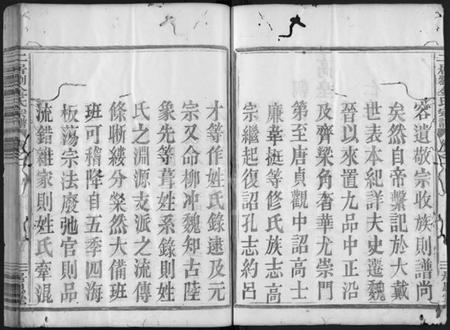 容遺敬宗收族則譜尚
矣然自帝繫記於大戴
世表本紀詳夫史遷魏
晉以來置九品中正沿
及齊梁角奢華尤崇門
第至唐貞觀中詔高士
廉等修氏族志高
宗繼起復詔孔志約呂
才等作姓氏錄速及元
宗又命柳冲魏知古陸
象先等葺姓系錄則姓
氏之淵源支派之流傳
條晰縷分粲然大備班
班可稽降自五季四海
板蕩宗法廢弛官則品
流錯雜家則姓氏牽混